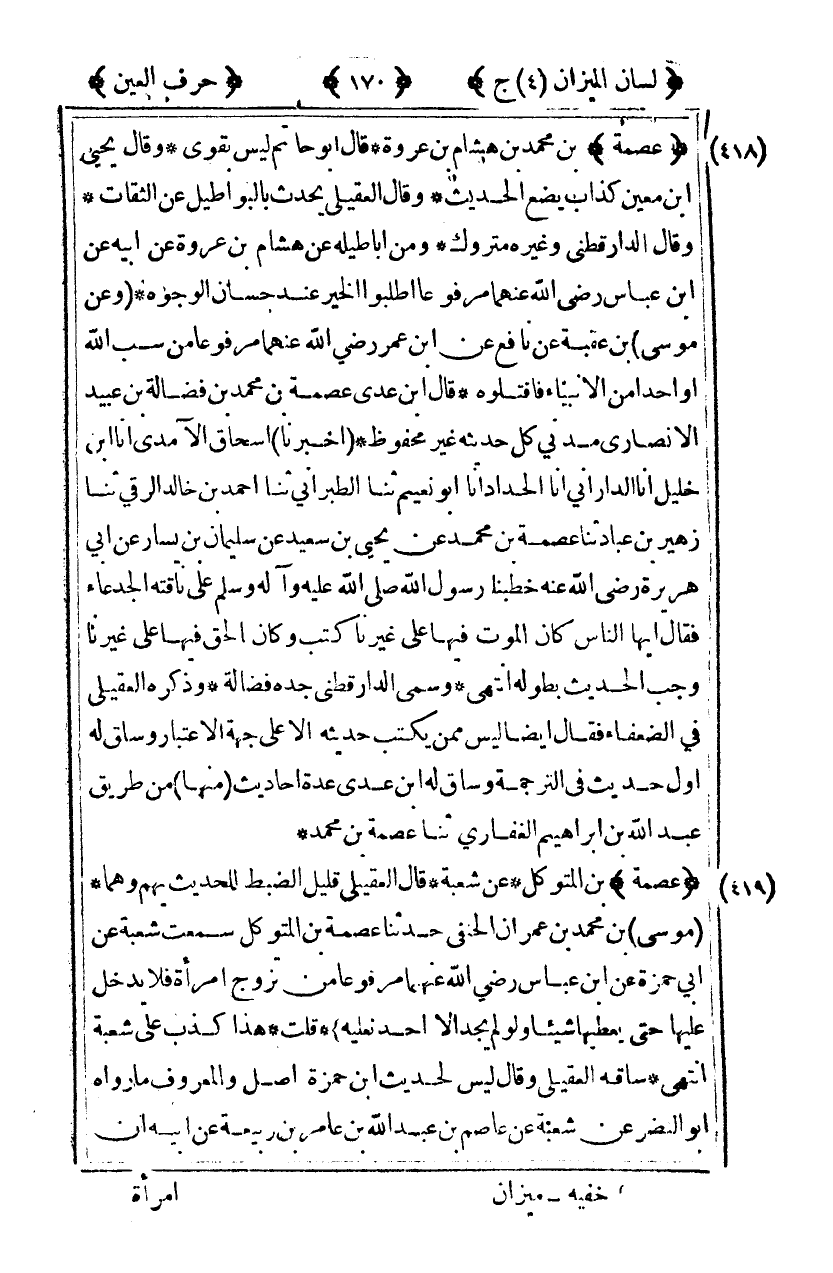 ﴿ لسان الميزان (٤) ج ﴾ ﴿ ١٧٠ ﴾ ﴿ حرف العين ﴾
(٤١٨) ﴿ عصمة ﴾ بن محمد بن هشام بن عروة * قال ابو حاتم ليس بقوى * وقال يحيى
ابن معين كذاب يضع الحديث * وقال العقيلى يحدث بالبواطيل عن الثقات *
وقال الدارقطنى وغيره متروك * ومن اباطيله عن هشام بن عروة عن ابيه عن
ابن عباس رضى الله عنهما مرفوعا اطلبوا الخير عند حسان الوجوه * (وعن
موسى) بن عقبة عن نافع عن ابن عمر رضي الله عنهما مرفوعا من سب الله
او احدا من الانبياء فاقتلوه * قال ابن عدى عصمة بن محمد بن فضالة بن عبيد
الانصارى مدني كل حديثه غير محفوظ * (اخبرنا) اسحاق الآمدى انا ابن
خليل انا الداراني انا الحداد انا ابو نعيم ثنا الطبراني ثنا احمد بن خالد الرقي ثنا
زهير بن عباد ثنا عصمة بن محمد عن يحيى بن سعيد عن سليمان بن يسار عن ابي
هريرة رضى الله عنه خطبنا رسول الله صلى الله عليه وآله وسلم على ناقته الجدعاء
فقال ايها الناس كان الموت فيها على غيرنا كتب وكان الحق فيها على غيرنا
وجب الحديث بطوله انتهى * وسمى الدارقطنى جده فضالة * وذكره العقيلى
في الضعفاء فقال ايضا ليس ممن يكتب حديثه الا على جهة الاعتبار وساق له
اول حديث فى الترجمة وساق له ابن عدى عدة احاديث (منها) من طريق
عبد الله بن ابراهيم الغفاري ثنا عصمة بن محمد *
(٤١٩) ﴿ عصمة ﴾ بن المتوكل * عن شعبة * قال العقيلي قليل الضبط للحديث يهم وهما *
(موسى) بن محمد بن عمران الحنفى حدثنا عصمة بن المتوكل سمعت شعبة عن
ابي حمزة عن ابن عباس رضي الله عنهما مرفوعا من تزوج امرأة فلا يدخل
عليها حتى يعطيها شيئا ولو لم يجد الا احد نعليه) * قلت * هذا كذب على شعبة
انتهى * ساقه العقيلى وقال ليس لحديث ابن حمزة اصل والمعروف ما رواه
ابو النضر عن شعبة عن عاصم بن عبد الله بن عامر بن ربيعة عن ابيه ان
خفيه ـ ميزان امرأة